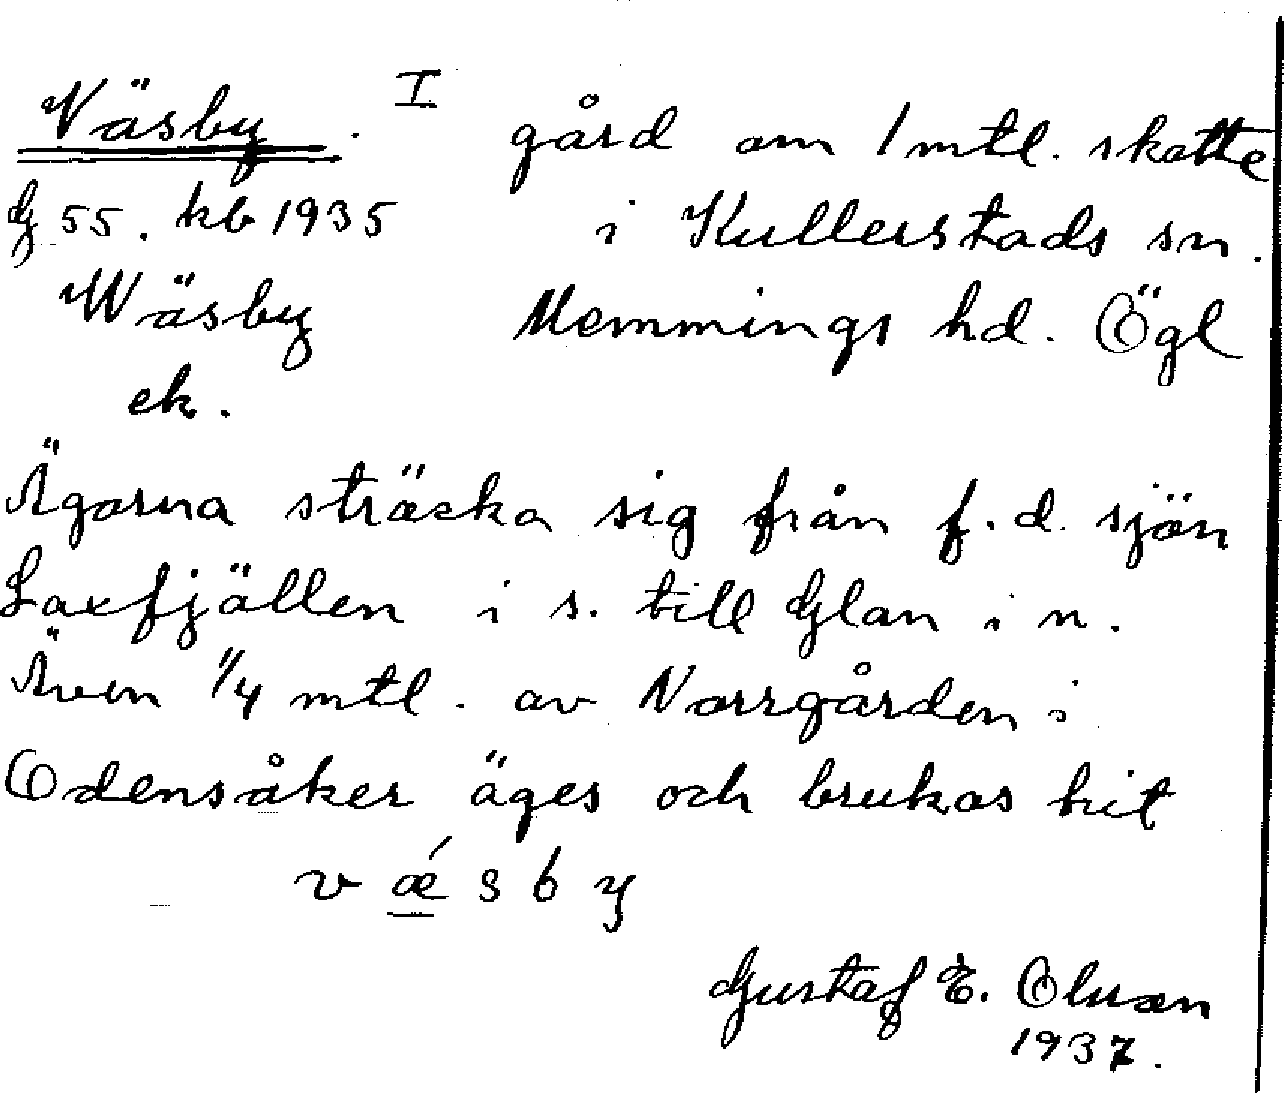 Väsby. I gård om 1 mtl. skatte
G 55. kb 1935 i Kullerstads sn.
Wäsby Memmings hd. Ögl
ek.
Ägorna sträcka sig från f.d. sjön
Laxfjällen i s. till Glan i n.
Även 1/4 mtl. av Norrgården i
Odensåker äges och brukas hit
v ǽ s b y
Gustaf E. Olsson
1937.